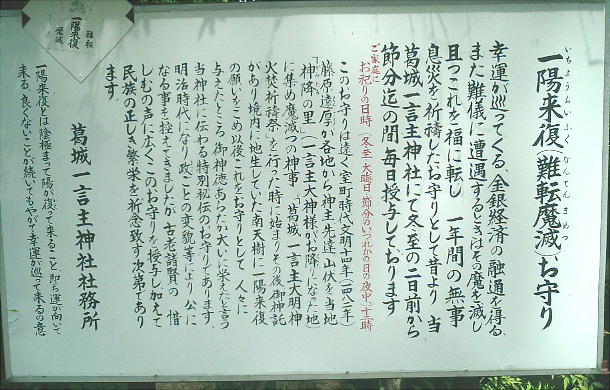 一陽来復(難転魔滅)お守り
いちようらいふく なんてんまめつ
幸運が巡ってくる、金銀経済の融通を得る、
また難儀に遭遇するときはその魔を滅し
且つこれを福に転し 一年間の無事
息災を祈祷したお守りとして昔より 当
葛城一言主神社にて冬至の二日前から
節分迄の間 毎日授与しております
ご家庭にお祀りの日時(冬至・大晦日・節分のいづれかの日の夜中十二時)
このお守りは遠く室町時代文明十四年(一四八二年)
藤原遠厚が各地から神主先達山伏を当地
「神降の里」(一言主大神様がお降りになった地)
に集め魔滅つの神事 「葛城一言主大明神
火焚祈祷祭」を行った時に始まりその後御神託
があり境内に地生していた南天樹に一陽来復
の願いをこめ以後これをお守りとして 人々に
与えたところ御神徳あらたか大いに栄えたと言う
当神社に伝わる特別秘伝のお守りであります
明治時代になり政ごとの変貌等により 公に
なる事を控えてきましたが 古老諸賢の 惜
しむの声に広くこのお守りを授与し加えて
民族の正しき繁栄を祈念致す次第であり
ます。
葛城一言主神社社務所
一陽来復とは陰極まって陽が復って来ること 即ち運が向いて
来る 良くないことが続いてもやがて幸運が巡って来るの意
一陽来復
難転
魔滅